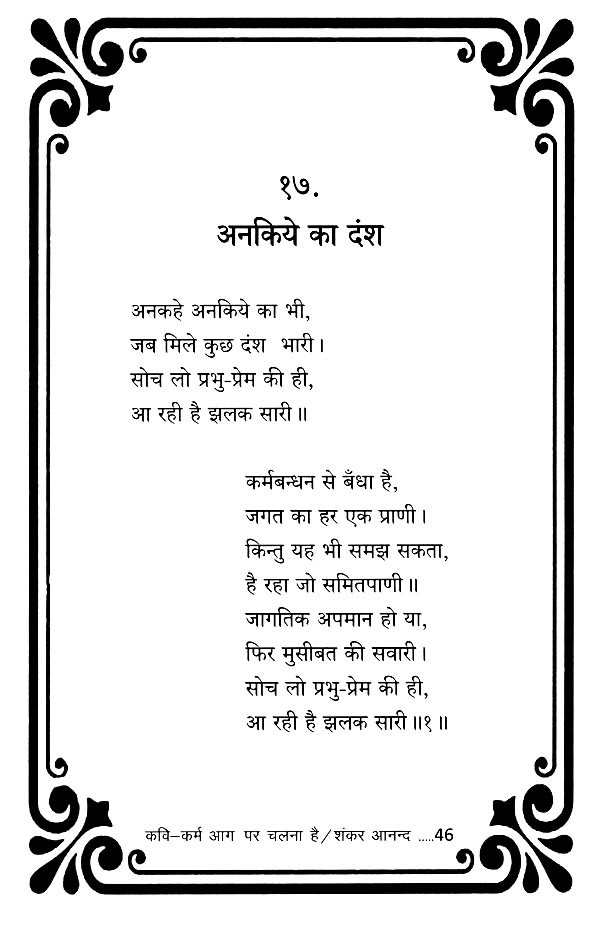 १७.
अनकिये का दंश
अनकहे अनकिये का भी,
जब मिले कुछ दंश भारी।
सोच लो प्रभु-प्रेम की ही,
आ रही है झलक सारी॥
कर्मबन्धन से बँधा है,
जगत का हर एक प्राणी।
किन्तु यह भी समझ सकता,
है रहा जो समितपाणी॥
जागतिक अपमान हो या,
फिर मुसीबत की सवारी।
सोच लो प्रभु-प्रेम की ही,
आ रही है झलक सारी॥१॥
कवि–कर्म आग पर चलना है/शंकर आनन्द .....46